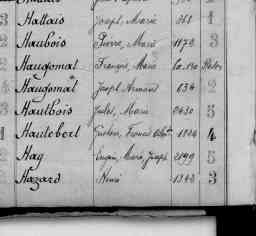 3 Hallais Joseph, Marie 968 1
3 Haubois Pierre, Marie 1878 3
2 Haugomat François, Marie
4 Haugomat Joseph Armand 834 2
3 Hautbois Jules, Marie 0430 5
1 Hautebert Gustave, France 1824 4
2 Hay Eugène, Marie, Joseph 2199 5
Hazard René 1342 3